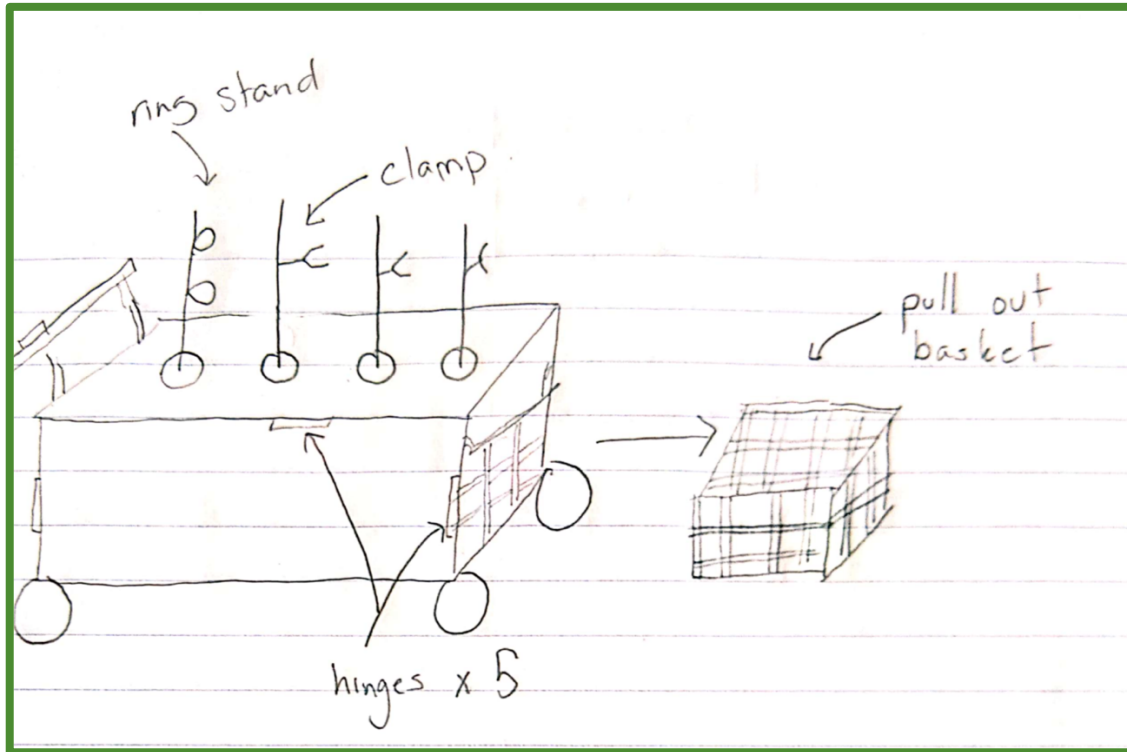 ring stand
clamp
pull out
basket
hinges x 5